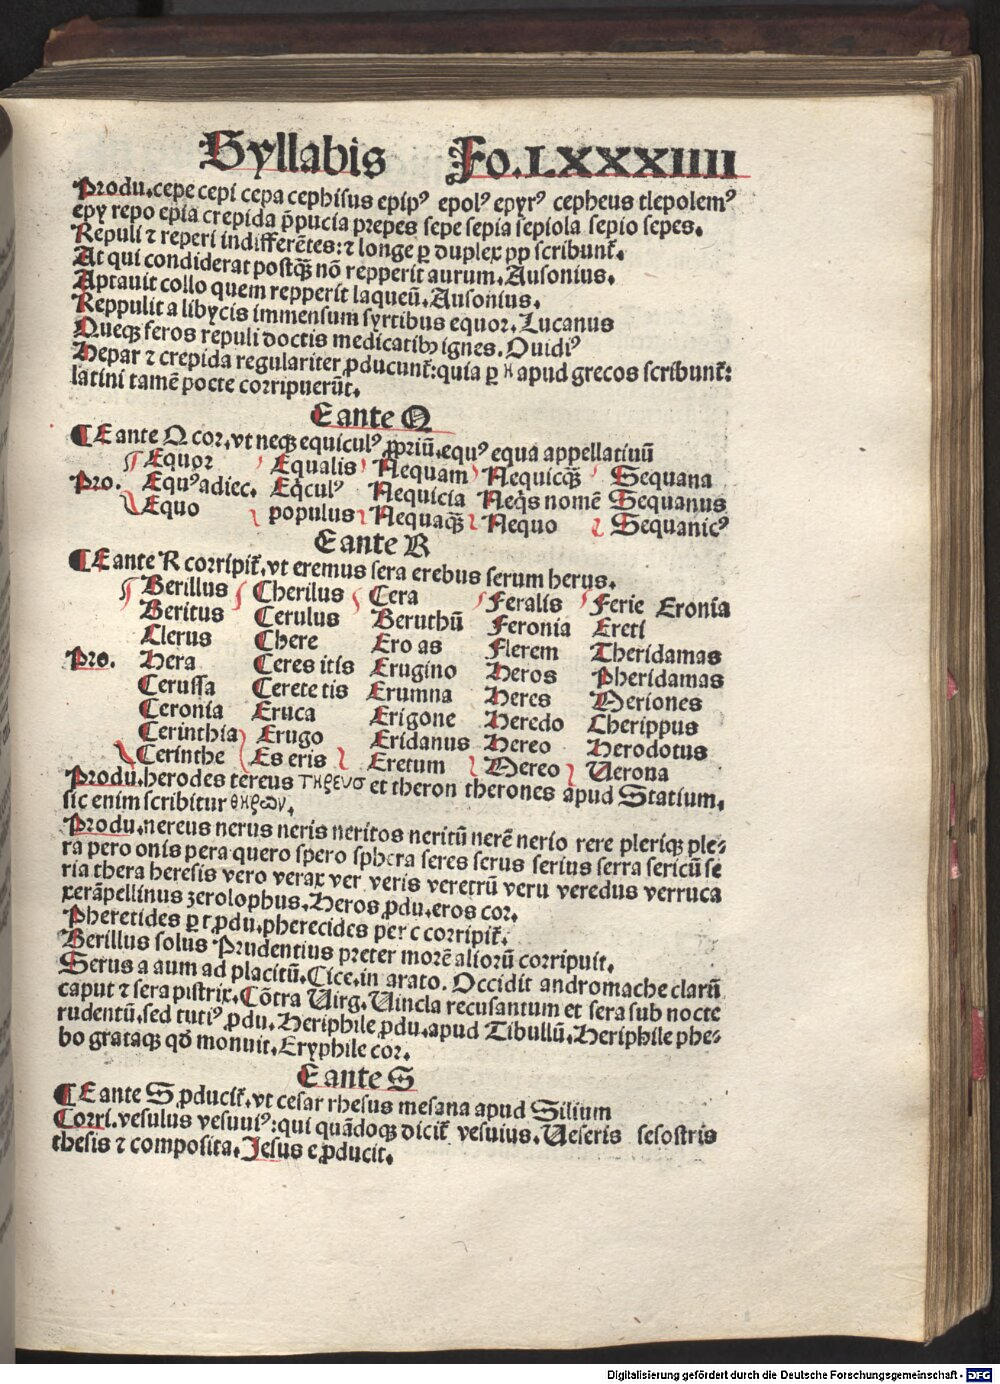 Syllabis Fo.LXXXXIIII
Produ.cepe cepi cepa cephisus epipꝰ epolꝰ epyrꝰ cepheus tlepolemꝰ
epy repo epia crepida p̄pucia prepes sepe sepia sepiola sepio sepes.
Repuli ⁊ reperi indifferētes:⁊ longe ꝑ duplex pp scribunt̄.
At qui condiderat postq̄ȝ nō repperit aurum.Ausonius.
Aptauit collo quem repperit laqueū.Ausonius.
Reppulit a libycis immensum syrtibus equor.Lucanus
Queqȝ feros repuli doctis medicatibȝ ignes.Ouidiꝰ
Hepar ⁊ crepida regulariter ꝓducunt̄:quia ꝑ H apud grecos scribunt̄:
latini tamē pocte corripuerūt.
E ante Q
¶E ante Q cor.vt neqȝ equiculꝰ ꝓpriū.equꝰ equa appellatiuū
Equor Equalis Nequam Nequicq̄ȝ Sequana
Pro. Equꝰadiec. Eq̇culꝰ Nequicia Neq̇s nomē Sequanus
Equo populus Nequaq̄ȝ Nequo Sequanicꝰ
E ante R
¶E ante R corripit̄.vt eremus sera erebus serum herus.
Berillus Cherilus Cera Feralis Ferie Eronia
Beritus Cerulus Beruthū Feronia Ereti
Clerus Chere Ero as Flerem Theridamas
Pro. Hera Ceres itis Erugino Heros Pheridamas
Cerussa Cerete tis Erumna Heres Meriones
Ceronia Eruca Erigone Heredo Cherippus
Cerinthia Erugo Eridanus Hereo Herodotus
Cerinthe Es eris Eretum Mereo Uerona
Produ.herodes tereus τηρευσ et theron therones apud Statium.
sic enim scribitur θηρων.
Produ.nereus nerus neris neritos neritū nerē nerio rere pleriqȝ ple⸗
ra pero onis pera quero spero sphera seres serus serius serra sericū se
ria thera heresis vero verax ver veris veretrū veru veredus verruca
xerāpellinus zerolophus.Heros ꝓdu.eros cor.
Pheretides ꝑ t ꝓdu.pherecides per c corripit̄.
Berillus solus Prudentius preter morē aliorū corripuit.
Serus a aum ad placitū.Cice.in arato. Occidit andromache clarū
caput ⁊ sera pistrix.Cōtra Uirg.Uincla recusantum et sera sub nocte
rudentū.sed tutiꝰ ꝓdu.Heriphile ꝓdu.apud Tibullū.Heriphile phe⸗
bo grataqȝ qđ monuit.Eryphile cor.
E ante S
¶E ante S ꝓducit̄.vt cesar rhesus mesana apud Silium
Corri.vesulus vesuuiꝰ:qui quādoqȝ dicit̄ vesuius.Ueseris sesostris
thesis ⁊ composita.Jesus e ꝓducit.
Digitalisierung gefördert durch die Deutsche Forschungsgemeinschaft - DFG